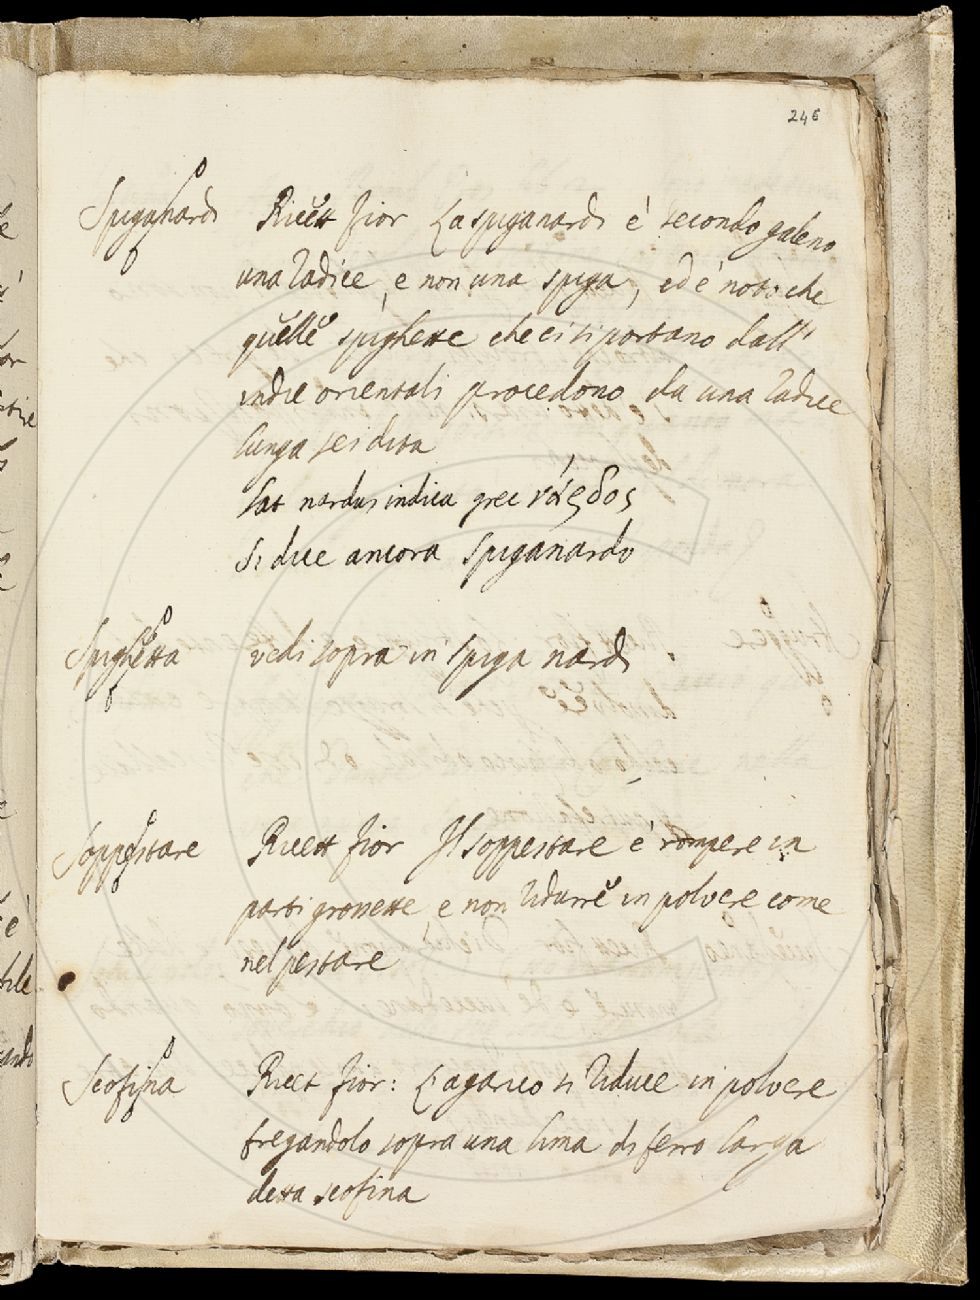 246
Spiganardi Ricett fior La spiganardi é secondo galeno
una radice, e non una spiga, ed é noto che
quelle spighette che ci si portano dall'
indie orientali procedono da una radice
lunga sei dita
Lat nardus indica grec νάρδος
si dice ancora spiganardo
Spighetta vedi sopra in spiga nardi
Soppestare Ricett fior Il soppestare é rompere in
parti grossette, e non ridurre in polvere come
nel pestare
Scofina Ricet fior: L'agarico si riduce in polvere
fregandolo sopra una lima di ferro larga
detta scofina